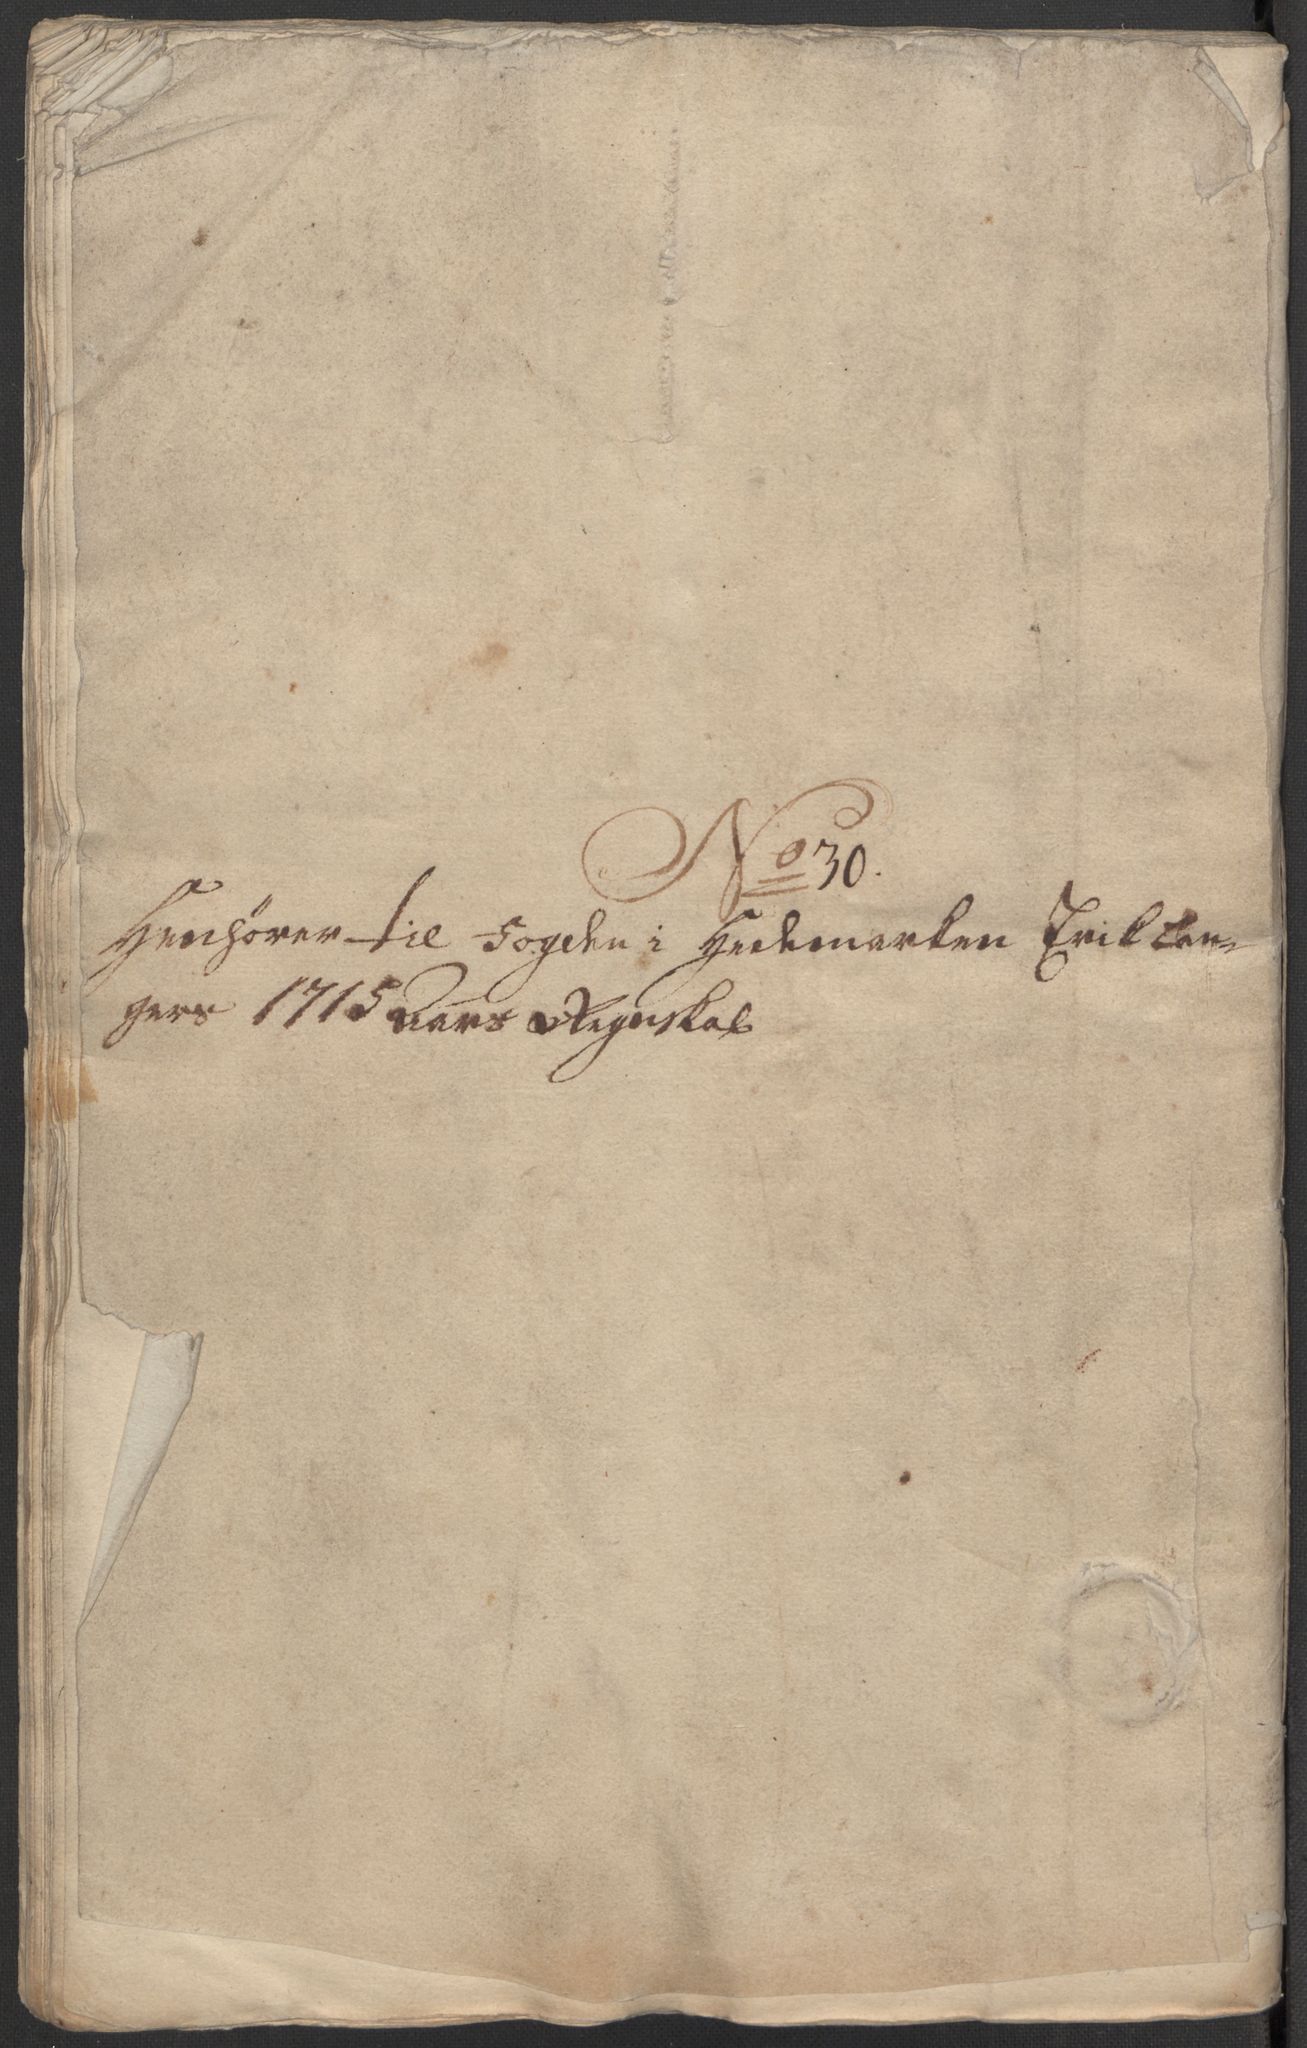 No 30.
Henhörer til Fogden i Hedemarken Eric Lan-
gers 1715 aars Regnskab